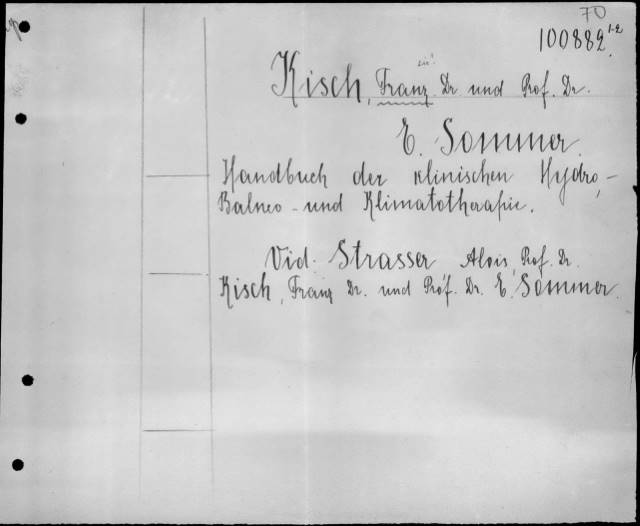 70
100882 1-2
Kisch, Franz Dr. und Prof. Dr.
E. Sommer.
Handbuch der klinischen Hydro,-
Balneo - und Klimatotherapie.
Vid. Strasser Alois, Prof. Dr.
Kisch, Franz Dr. und Prof. Dr. E. Sommer.